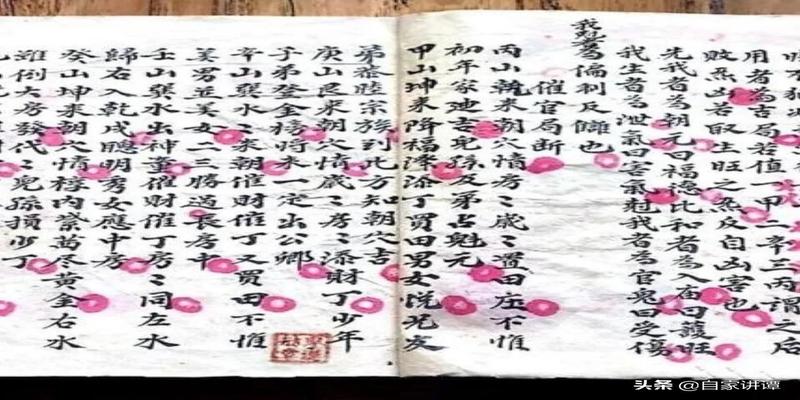 用者為吉局若值一甲二辛三丙謂之后
敗煞凶若取生旺之炁反自凶害也
先我者為朝元曰福德比和者為入廟曰護旺
我生者為泄氣曰害氣尅我者為官鬼曰受傷
我尅為儔利反讎也
催官局斷
丙山乾來朝穴情房〻歲〻置田庄不惟
初年家迪吉兒孫及第占魁元
甲山坤來降福澤添丁買田男女悅兄友
弟恭睦宗族到此方知朝穴吉
庚山艮來朝穴情歲〻房〻添財丁少年
子弟登金榜將來一定出公卿
辛山巽水〻來朝催財催丁又買田不惟
美男並美女二三勝過長房中
壬山巽水出神童催財催丁房〻同左水
歸右入乾戌聰明秀女應中房
癸山坤來朝穴情穆內紫萬尽黄金右水
雖倒大房發代〻兒孫損少丁
头条 @自家讲谭